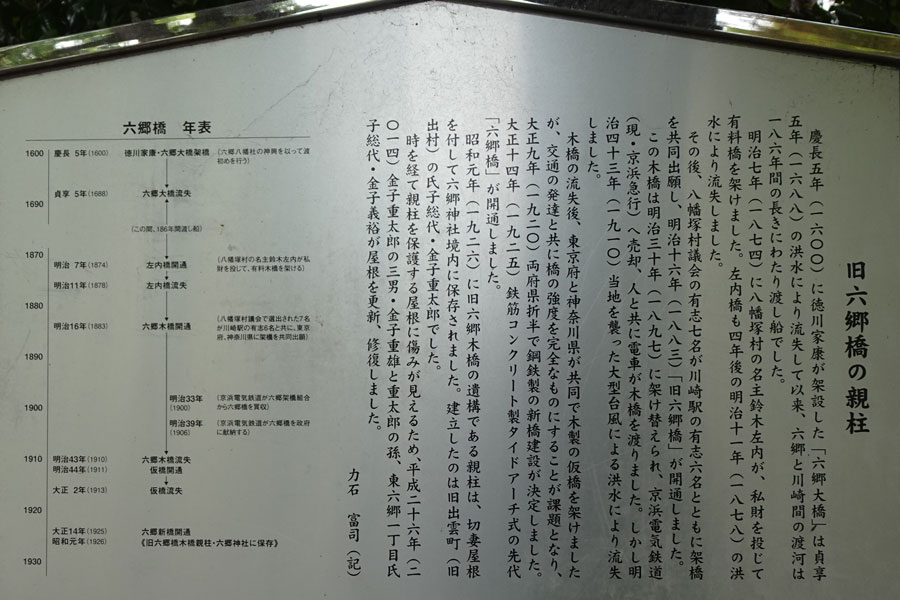 旧六郷橋の親柱
慶長五年(一六〇〇)に徳川家康が架設した「六郷大橋」は貞享
五年(一六八八)の洪水により流失して以来、六郷と川崎間の渡河は
一八六年間の長きにわたり渡し船でした。
明治七年(一八七四)に八幡塚村の名主鈴木左内が、私財を投じて
有料橋を架けました。左内橋も四年後の明治十一年(一八七八)の洪
水により流失しました。
その後、八幡塚村議会の有志七名が川崎駅の有志六名とともに架橋
を共同出願し、明治十六年(一八八三)「旧六郷橋」が開通しました。
この木橋は明治三十年(一八九七)に架け替えられ、京浜電気鉄道
(現・京浜急行)へ売却、人と共に電車が木橋を渡りました。しかし明
治四十三年(一九一〇)当地を襲った大型台風による洪水により流失
しました。
木橋の流失後、東京府と神奈川県が共同で木製の仮橋を架けました
が、交通の発達と共に橋の強度を完全なものにすることが課題となり、
大正九年(一九二〇)両府県折半で鋼鉄製の新橋建設が決定しました。
大正十四年(一九二五)鉄筋コンクリート製タイドアーチ式の先代
「六郷橋」が開通しました。
昭和元年(一九二六)に旧六郷木橋の遺構である親柱は、切妻屋根
を付して六郷神社境内に保存されました。建立したのは旧出雲町(旧
出村)の氏子総代・金子重太郎でした。
時を経て親柱を保護する屋根に傷みが見えるため、平成二十六年(二
〇一四)金子重太郎の三男・金子重雄と重太郎の孫、東六郷一丁目氏
子総代・金子義裕が屋根を更新、修復しました。
力石 富司(記)
六郷橋 年表
1600 慶長 5年(1600) 徳川家康・六郷大橋架橋 (六郷八幡社の神輿を以って渡
初めを行う)
貞享 5年(1688) 六郷大橋流失
1690
(この間、186年間渡し船)
1870
明治 7年(1874) 左内橋開通 (八幡塚村の名主鈴木左内が私
財を投じて、有料木橋を架ける)
明治11年(1878) 左内橋流失
1880
明治16年(1883) 六郷木橋開通 (八幡塚村議会で選出された7名
が川崎駅の有志6名と共に、東京
府、神奈川県に架橋を共同出願)
1890
明治33年 (京浜電気鉄道が六郷架橋組合
(1900) から六郷橋を買収)
1900
明治39年 (京浜電気鉄道が六郷橋を政府
(1906) に献納する)
1910 明治43年(1910) 六郷木橋流失
明治44年(1911) 仮橋開通
大正 2年(1913) 仮橋流失
1920
大正14年(1925) 六郷新橋開通
昭和元年(1926) 《旧六郷橋木橋親柱・六郷神社に保存》
1930